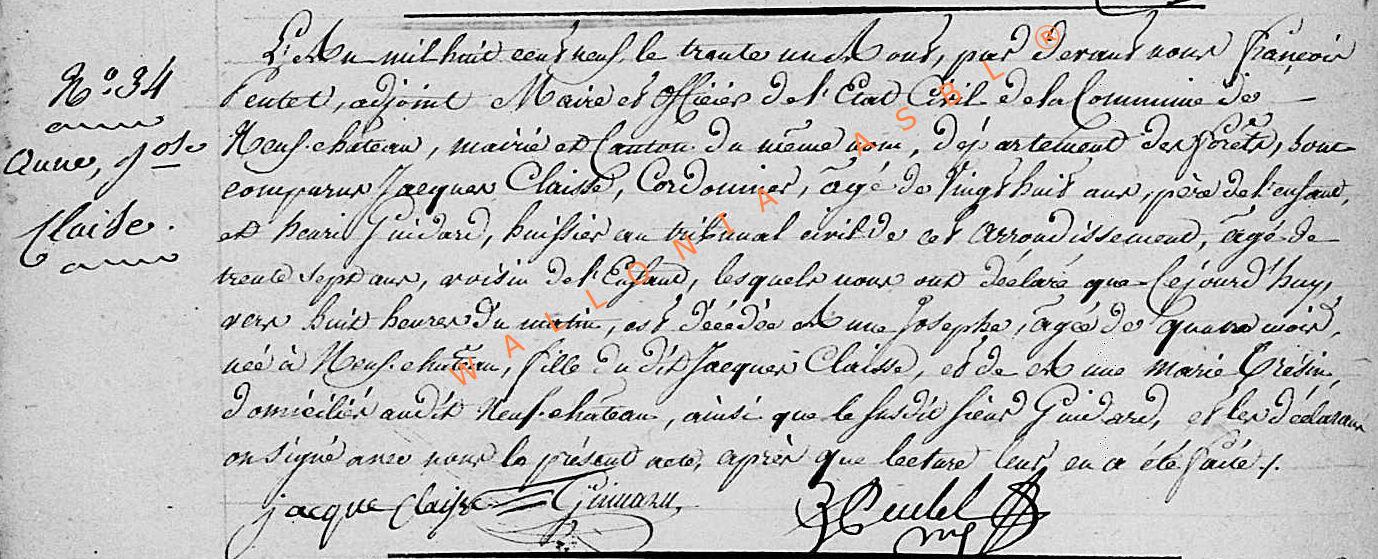 N.° 34
Anne, Jos.le
Claisse.
L'An mil huit cent neuf, le trente un Aout, par devant nous françois
Pentet, adjoint Maire et Officier de l'Etat Civil de la Commune de
Neuf-château, mairie et Canton du même nom, département des forêts, sont
comparus Jacques Claisse, Cordonnier, âgé de vingt huit ans, père de l'enfant,
et henri Guidard, huissier au tribunal civil de cet arrondissement, âgé de
trente sept ans, voisin de l'Enfant, lesquels nous ont déclaré que Cejourd'huy,
vers huit heures du matin, est décédée Anne Josephe, âgée de quatre mois,
née à Neuf-château, fille du dit Jacques Claisse, et de Anne Marie Crésin,
domiciliés audit Neuf-château, ainsi que le susdit sieur Guidard, et les déclarans
on signé avec nous le présent acte, après que lecture leur en a été faite /.
jacque Claisse
WALLONIA ASBL ®